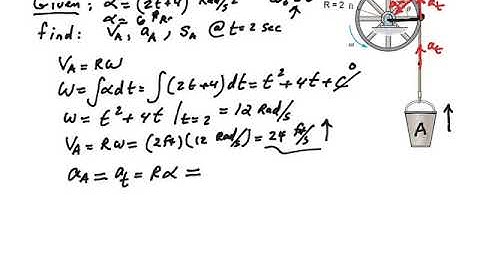 Given: α = (2t+4) Rad/s²
R = 2
α = 6
a_t
find: V_A, a_A, S_A @ t=2 sec
V_A = Rω
ω
a_t
ω = ∫αdt = ∫(2t+4)dt = t² + 4t + C 0
ω = t² + 4t |t=2 = 12 Rad/s
A
V_A = Rω = (2ft)(12 Rad/s) = 24 ft/s ↑
a_A = a_t = Rα =